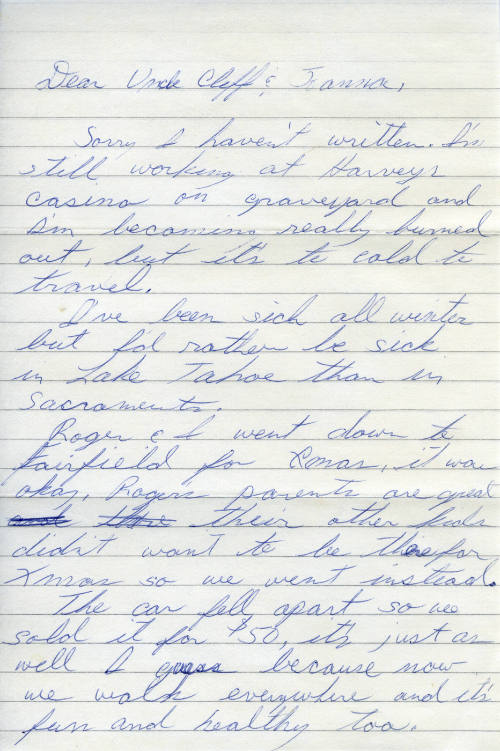 Dear Uncle Cliff & Franna,
Sorry I haven't written. I'm
still working at Harveys
casino on graveyard and
I'm becoming really burned
out, but it's to cold to
travel.
I've been sick all winter
but I'd rather be sick
in Lake Tahoe than in
Sacramento.
Roger & I went down to
Fairfield for Xmas, it was
okay, Rogers parents are great
their other kids
didn't want to be there for
Xmas so we went instead.
The car fell apart so we
sold it for $50, it's just as
well I guess because now
we walk everywhere and it's
fun and healthy too.